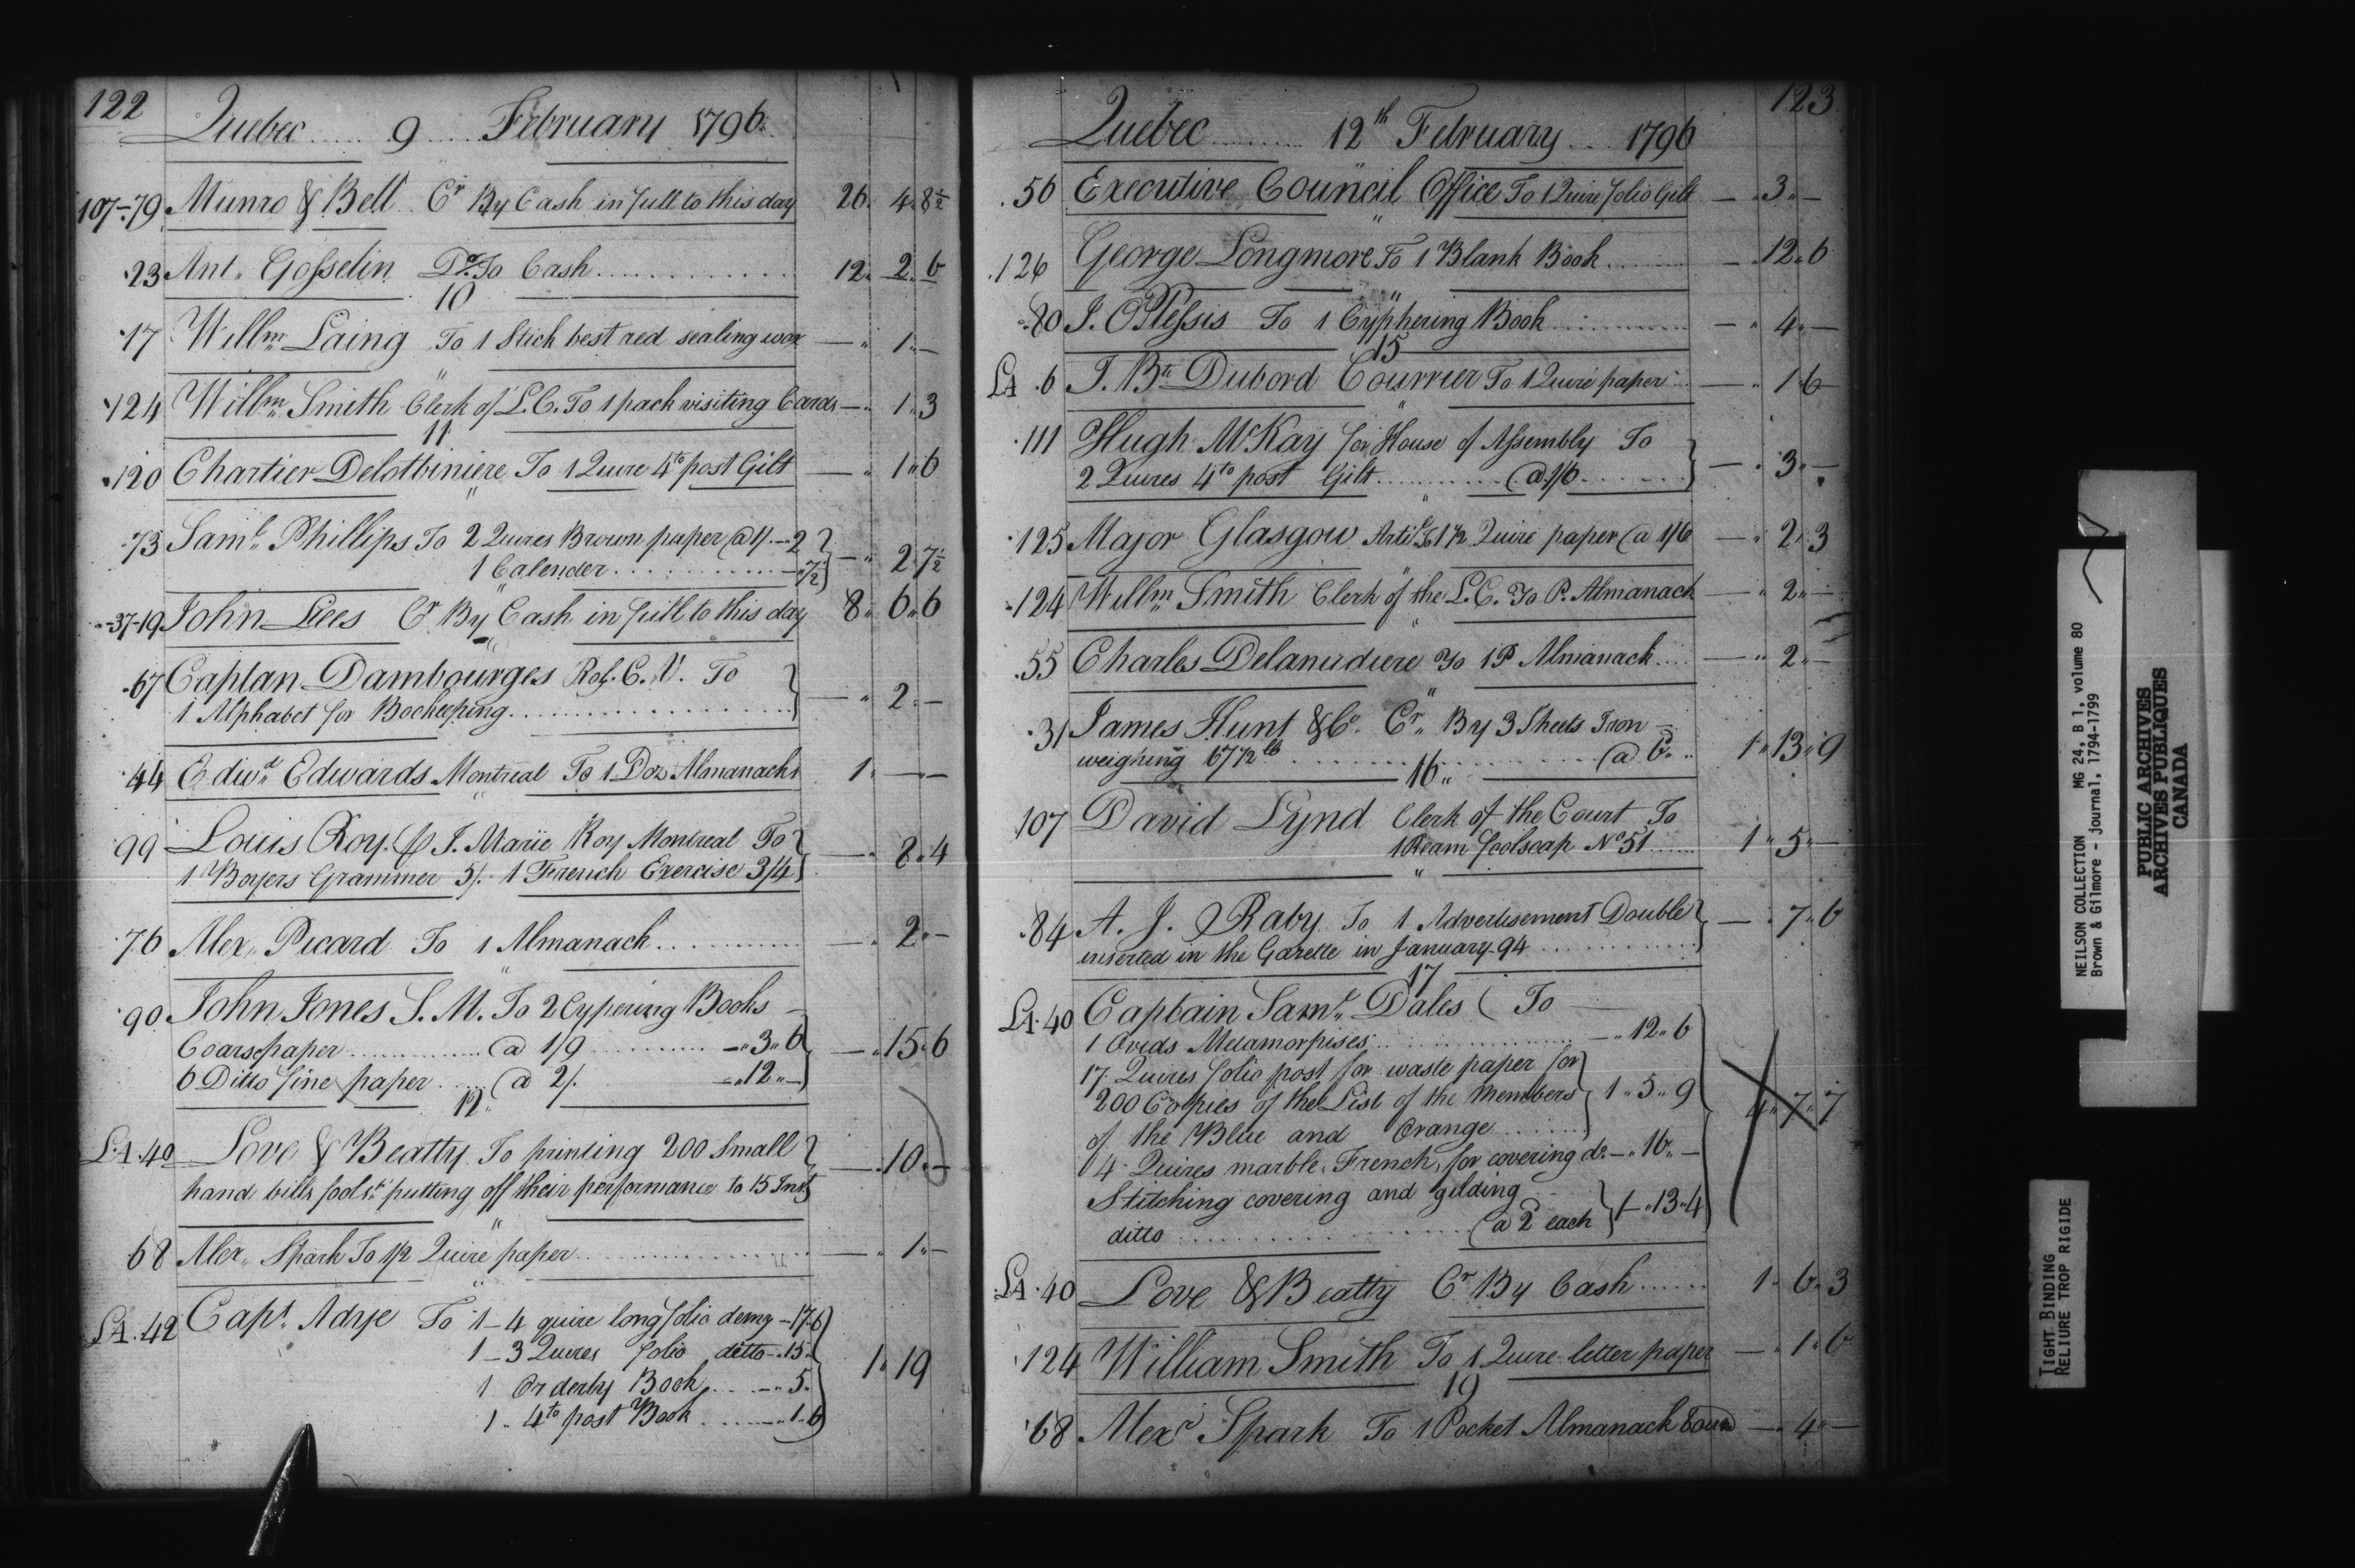 122
Quebec ...... 9 .... February 1796.
107-79 Munro & Bell Cr By Cash in full to this day 26. 4. 8½
23 Ant. Gosselin Dr. To Cash ............ 12. 2. 6
10
17 Willm Laing To 1 Stick best red sealing wax — " 1 " —
"
124 Willm Smith Clerk of L.C. To 1 pack visiting Cards — " 1 " 3
11
120 Chartier Delotbiniere To 1 Quire 4to post Gilt — " 1 " 6
"
73 Saml. Phillips To 2 Quires Brown paper @ 1/. — 2
1 Calender ............ — " 7½ } — " 2. 7½
"
37-19 John Lees Cr By Cash in full to this day 8 " 6 " 6
"
67 Captan Dambourges R.C.V. To
1 Alphabet for Bookeeping .................. } — " 2 " —
44 Edwd Edwards Montreal To 1 Doz Almanacks 1. — " —
"
99 Louis Roy. p J. Marie Roy Montreal To
1 Boyers Grammer 5/. 1 French Exercise 3/4 } — " 8 " 4
76 Alex. Picard To 1 Almanack ............ — " 2 " —
"
90 John Jones S. M. To 2 Cypering Books
Coarse paper ............ @ 1/9 ............ — " 3 " 6
6 Ditto fine paper ..... @ 2/. — " 12 " — } — " 15 " 6
12 "
LA. 40 Love & Beatty To printing 200 Small
hand bills fools. putting off their performance to 15 Inst } — " 10 " —
"
68 Alex. Spark To 1/2 Quire paper .................. — " 1 " —
"
LA. 42 Capt. Adye To 1 — 4 quire long folio demy — 17 " 6
1 — 3 Quires folio ditto — " 15 "
1 Orderly Book .... — " 5.
1 " 4to post Book ....... — " 1 " 6 } 1 " 19
123
Quebec ......... 12th February ... 1796
56 Executive Council Office To 1 Quire folio Gilt — " 3 " —
"
126 George Longmore To 1 Blank Book ......... — " 12 " 6
"
80 J. O Plessis To 1 Cyphering Book ............ — " 4 " —
15
LA 6 J. Bte Dubord Courrier To 1 Quire paper ... — " 1 " 6
"
111 Hugh McKay for House of Assembly To
2 Quires 4to post Gilt ............ @ 1/6 ....... } — " 3 " —
"
125 Major Glasgow Artily To 1 1/2 Quire paper @ 1/6 — " 2 " 3
"
124 Willm Smith Clerk of the L.C. To P. Almanack — " 2 " —
"
55 Charles Delanaudiere To 1 P Almanack .... — " 2 " —
"
31 James Hunt & Co. Cr. By 3 Sheets Iron
weighing 67 1/2 lb .................. @ 6. .. 1 " 13 " 9
16 "
107 David Lynd Clerk of the Court To
1 Ream foolscap No 51 ...... 1 " 5 " —
"
84 A. J. Raby To 1 Advertisement Double
inserted in the Gazette in January 94 ............ } — " 7 " 6
17
LA. 40 Captain Saml. Dales ( To
1 Ovids Metamorpises .................. — " 12 " 6
17 Quires folio post for waste paper for
200 Copies of the List of the Members } 1 " 5 " 9
of the Blue and Orange .......
4 Quires marble French, for covering do. — " 16 " —
Stitching covering and gilding
ditto .................. @ 2 each } 1 — " 13 " 4 } 4 " 7 " 7
LA. 40 Love & Beatty Cr By Cash ....... 1 " 6 " 3
124 William Smith To 1 Quire letter paper — " 1 " 6
19
68 Alexr Spark To 1 Pocket Almanack bound — " 4 " —
NEILSON COLLECTION MG 24, B 1, volume 80
Brown & Gilmore - journal, 1794-1799
PUBLIC ARCHIVES
ARCHIVES PUBLIQUES
CANADA
TIGHT BINDING
RELIURE TROP RIGIDE